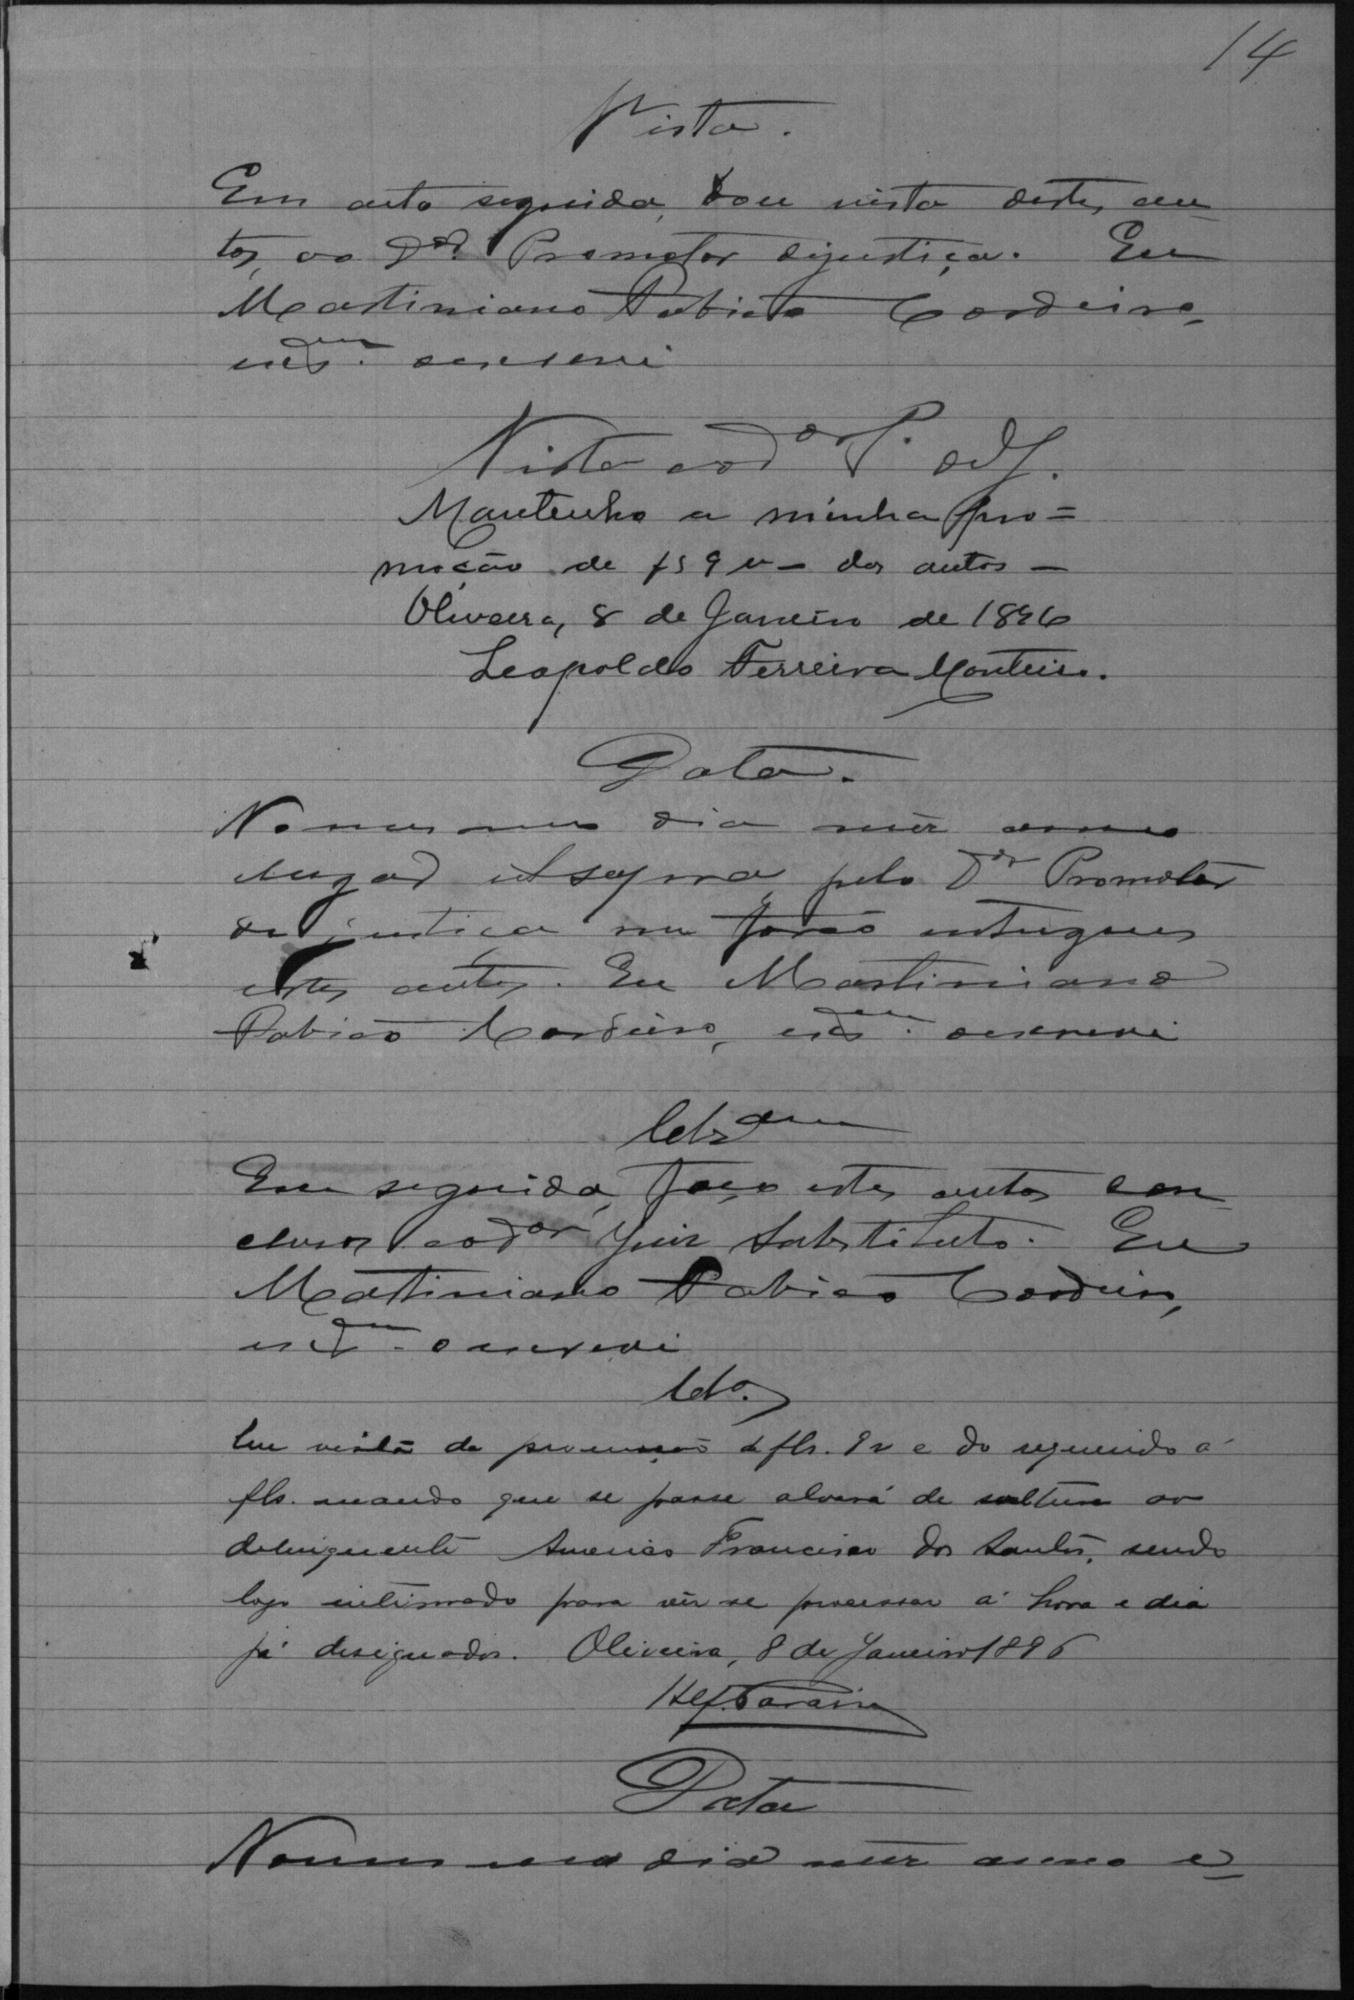 14
Vista.
Em acto seguida, dou vista destes au-
tos, ao Dor. Promotor dejustiça. Eu
Martiniano Fabião Cordeiro,
escrevi
Vista ao dor P. da J.
Mantenho a minha pro=
moção de fs 9 v— dos autos —
Oliveira, 8 de Janeiro de 1896
Leopoldo Ferreira Monteiro.
Data.
No mesmo dia mez anno
elugar pelo Dr Promotor
de justiça me forão entregues
estes autos. Eu Martiniano
Fabião Cordeiro, oescrevi
Clsam
Em seguida, faço estes autos con-
clusos aodor Juiz Substituto. Eu
Martiniano Fabião Cordeiro,
oescrevi
Clo.
Em vista da promoção de fls. 9v e do requerido á
fls. mando que se passe alvará de soltura ao
delinquente Americo Francisco dos Santos, sendo
logo intimado para vêr se processar á hora e dia
já designados. Oliveira, 8 de Janeiro 1896
Data
Nomesmo dia mez anno e-